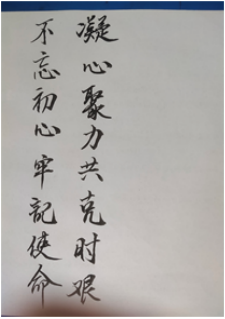 凝心聚力共克时艰
不忘初心牢記使命